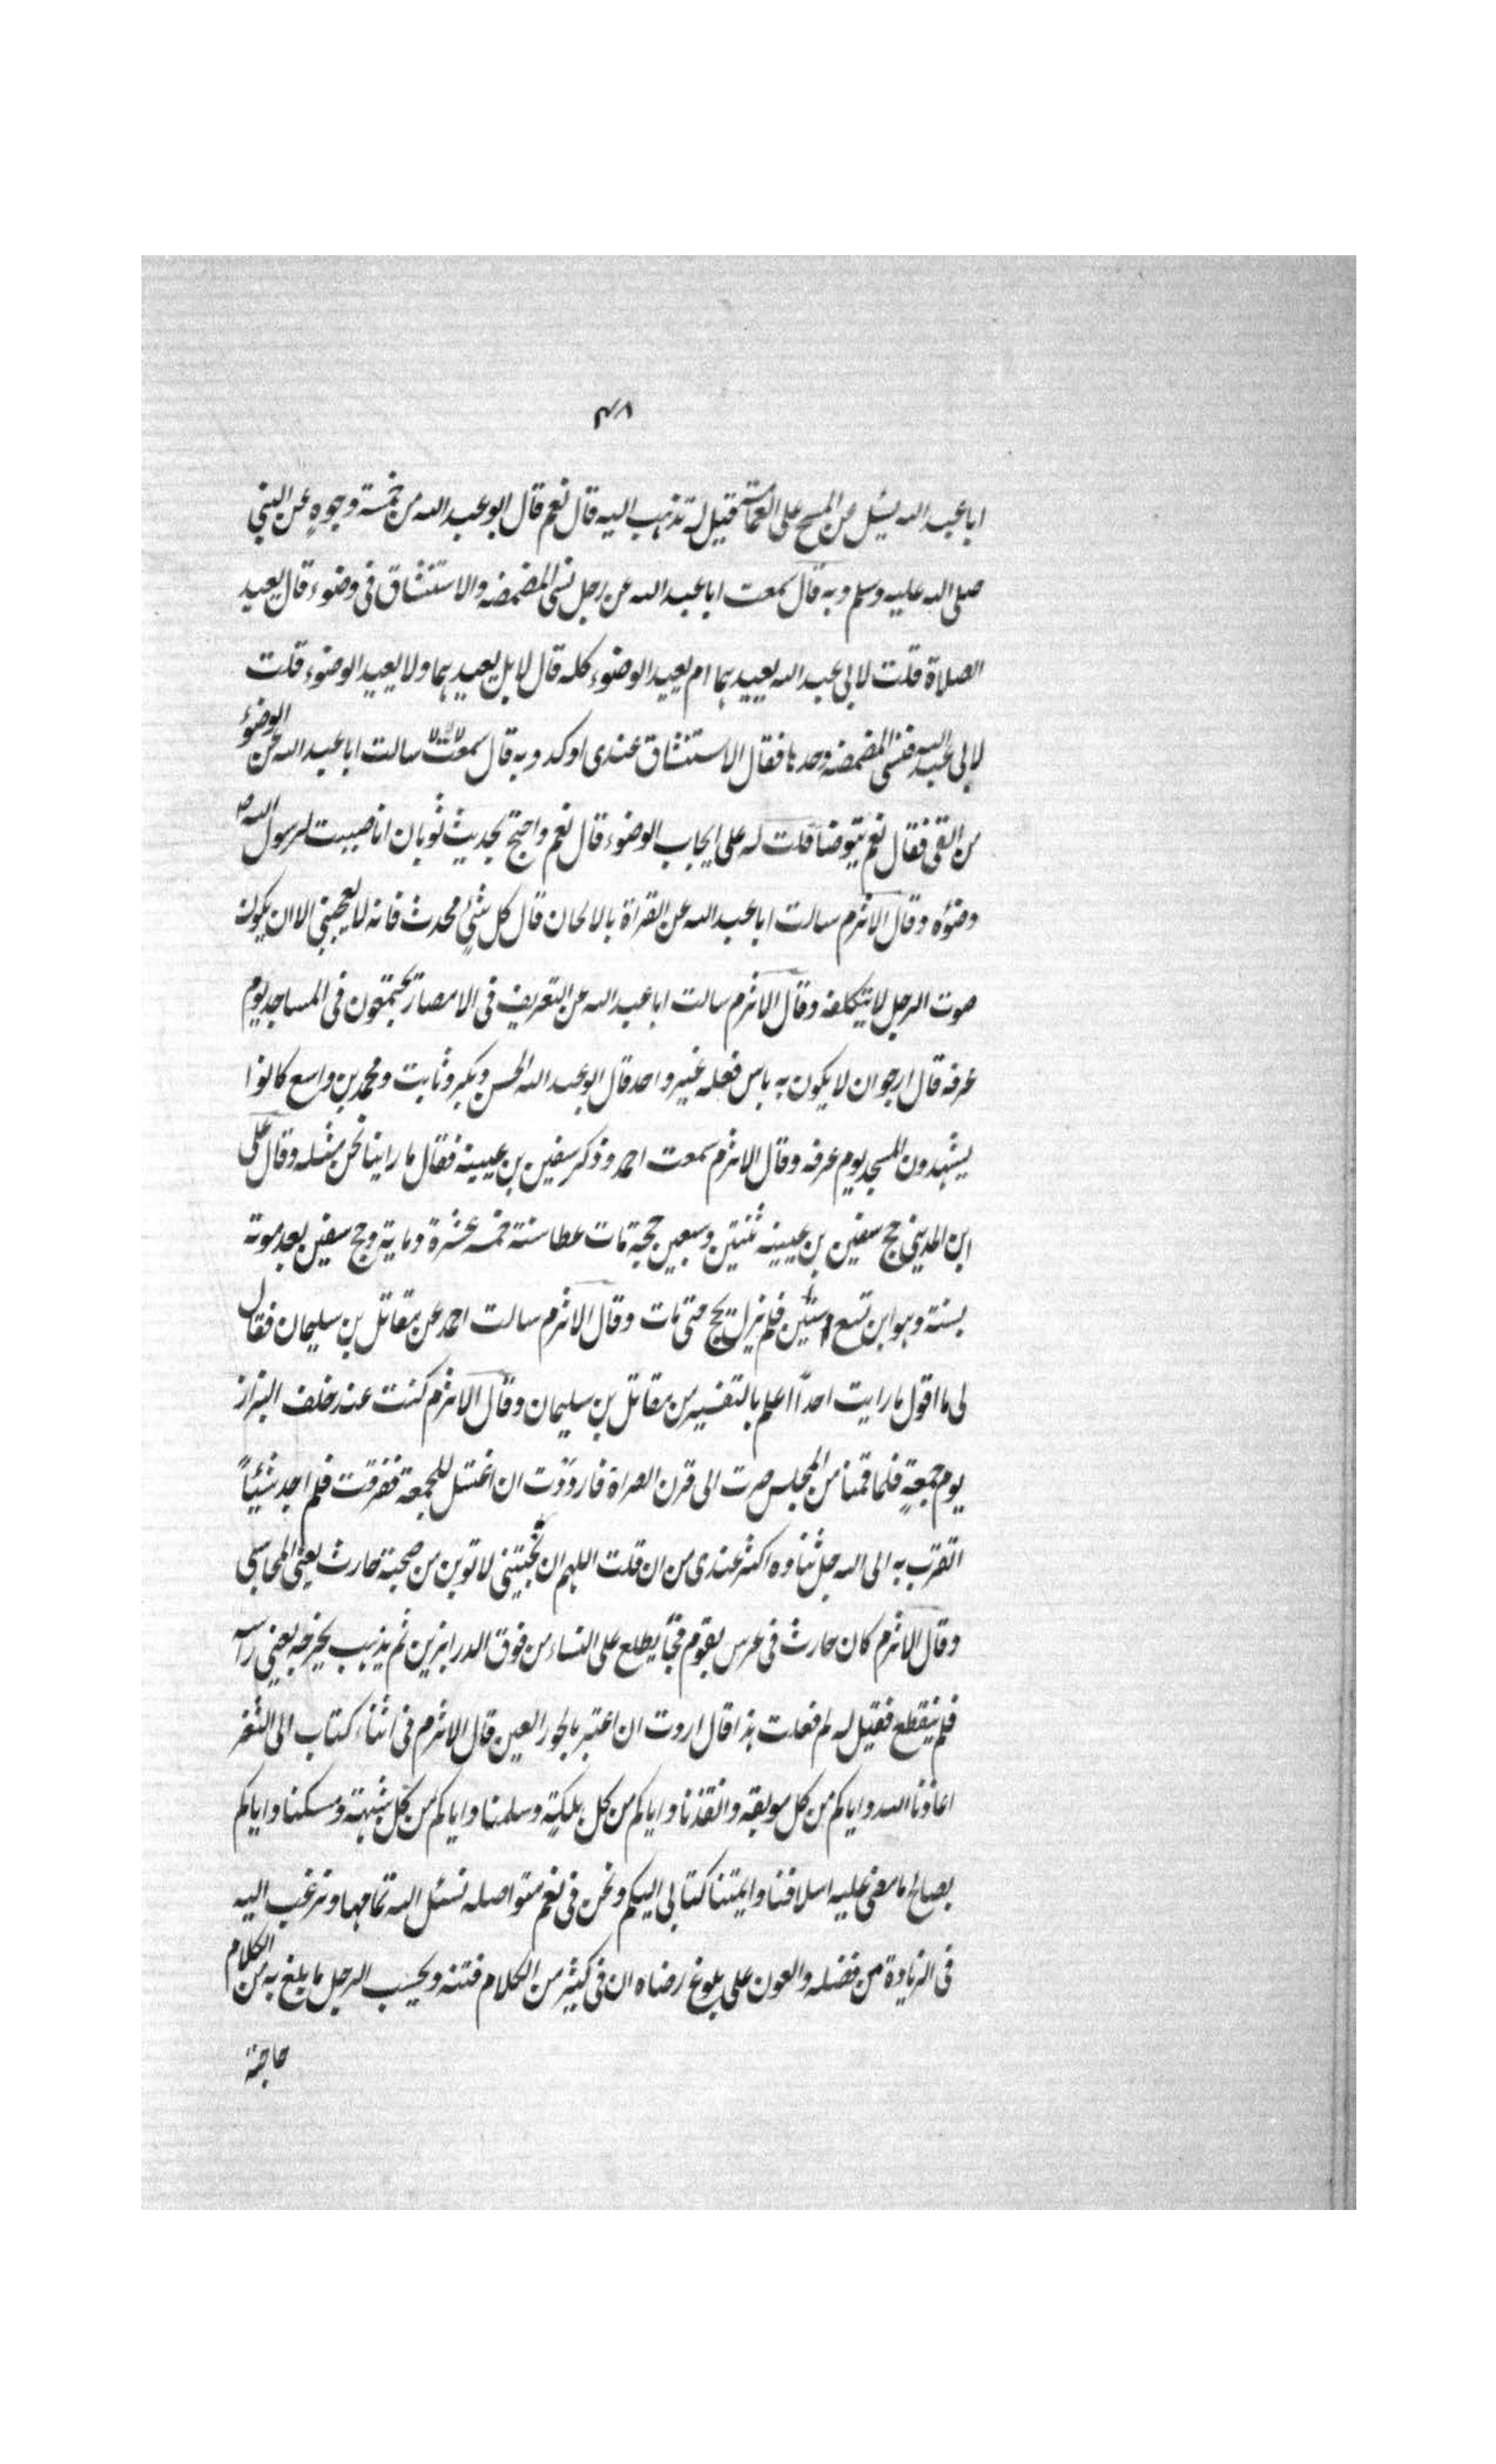 ٤٨
ابا عبد الله يسئل عن المسح على العمامة قيل له تذهب اليه قال نعم قال ابو عبد الله من خمسة وجوه عن النبي
صلى الله عليه وسلم وبه قال سمعت ابا عبد الله عن رجل نسى المضمضه والاستنشاق فى وضوء قال يعيد
الصلاة قلت لابى عبد الله يعيد بهما ام يعيد الوضوء كله قال لا بل يعيد بهما ولا يعيد الوضوء قلت
لابى عبد الله فنسى المضمضه وحدها فقال الاستنشاق عندى اوكد وبه قال سمعت سالت ابا عبد الله عن الوضوء
من القى فقال نعم يتوضا قلت له على ايجاب الوضوء قال نعم واحتج بحديث ثوبان انا صببت لرسول الله ص
وضوءه وقال الاثرم سالت ابا عبد الله عن القراة بالالحان قال كل شئ محدث فانه لا يعجبنى الا ان يكون
صوت الرجل لا يتكلفه وقال الاثرم سالت ابا عبد الله عن التعريف فى الامصار يجتمعون فى المساجد يوم
عرفه قال ارجو ان لا يكون به باس فعله غير واحد قال ابو عبد الله الحسن وبكر وثابت ومحمد بن واسع كانوا
يشهدون المسجد يوم عرفه وقال الاثرم سمعت احمد وذكر سفين بن عيينه فقال ما راينا نحن مثله وقال على
ابن المدينى حج سفين بن عيينه ثنتين وسبعين حجة مات عطا سنة خمسه عشرة وماية وحج سفين بعد موته
بسنة وهو ابن تسع وستين فلم يزل يحج حتى مات وقال الاثرم سالت احمد عن مقاتل بن سليمان فقال
لى ما اقول ما رايت احداً اعلم بالتفسير من مقاتل بن سليمان وقال الاثرم كنت عند خلف البزاز
يوم جمعةٍ فلما قمنا من المجلس صرت الى قرن الصراة فاردت ان اغتسل للجمعة فغرقت فلم اجد شيئاً
اتقرب به الى الله جل ثناوه اكثر عندى من ان قلت اللهم ان نجيتنى لاتوبن من صحبة حارث يعنى المحاسبى
وقال الاثرم كان حارث فى عرس بقوم فجأ يطلع على النساء من فوق الدرابزين ثم يذهب يخرجه يعنى راسه
فلم ينقطع فقيل له لم فعلت هذا قال اردت ان اعتبر بالحور العين قال الاثرم فى اثناء كتاب الى الثغر
اعاذنا الله واياكم من كل موبقه وانقذنا واياكم من كل مهلكة وسلمنا واياكم من كل شبهة ومسكنا واياكم
بصالح ما مضى عليه اسلافنا وايمتنا كتابى اليكم ونحن فى نعم متواصله نسئل الله تمامها ونرغب اليه
فى الزيادة من فضله والعون على بلوغ رضاه ان فى كثير من الكلام فتنه وبحسب الرجل ما بلغ به من الكلام
حاجته